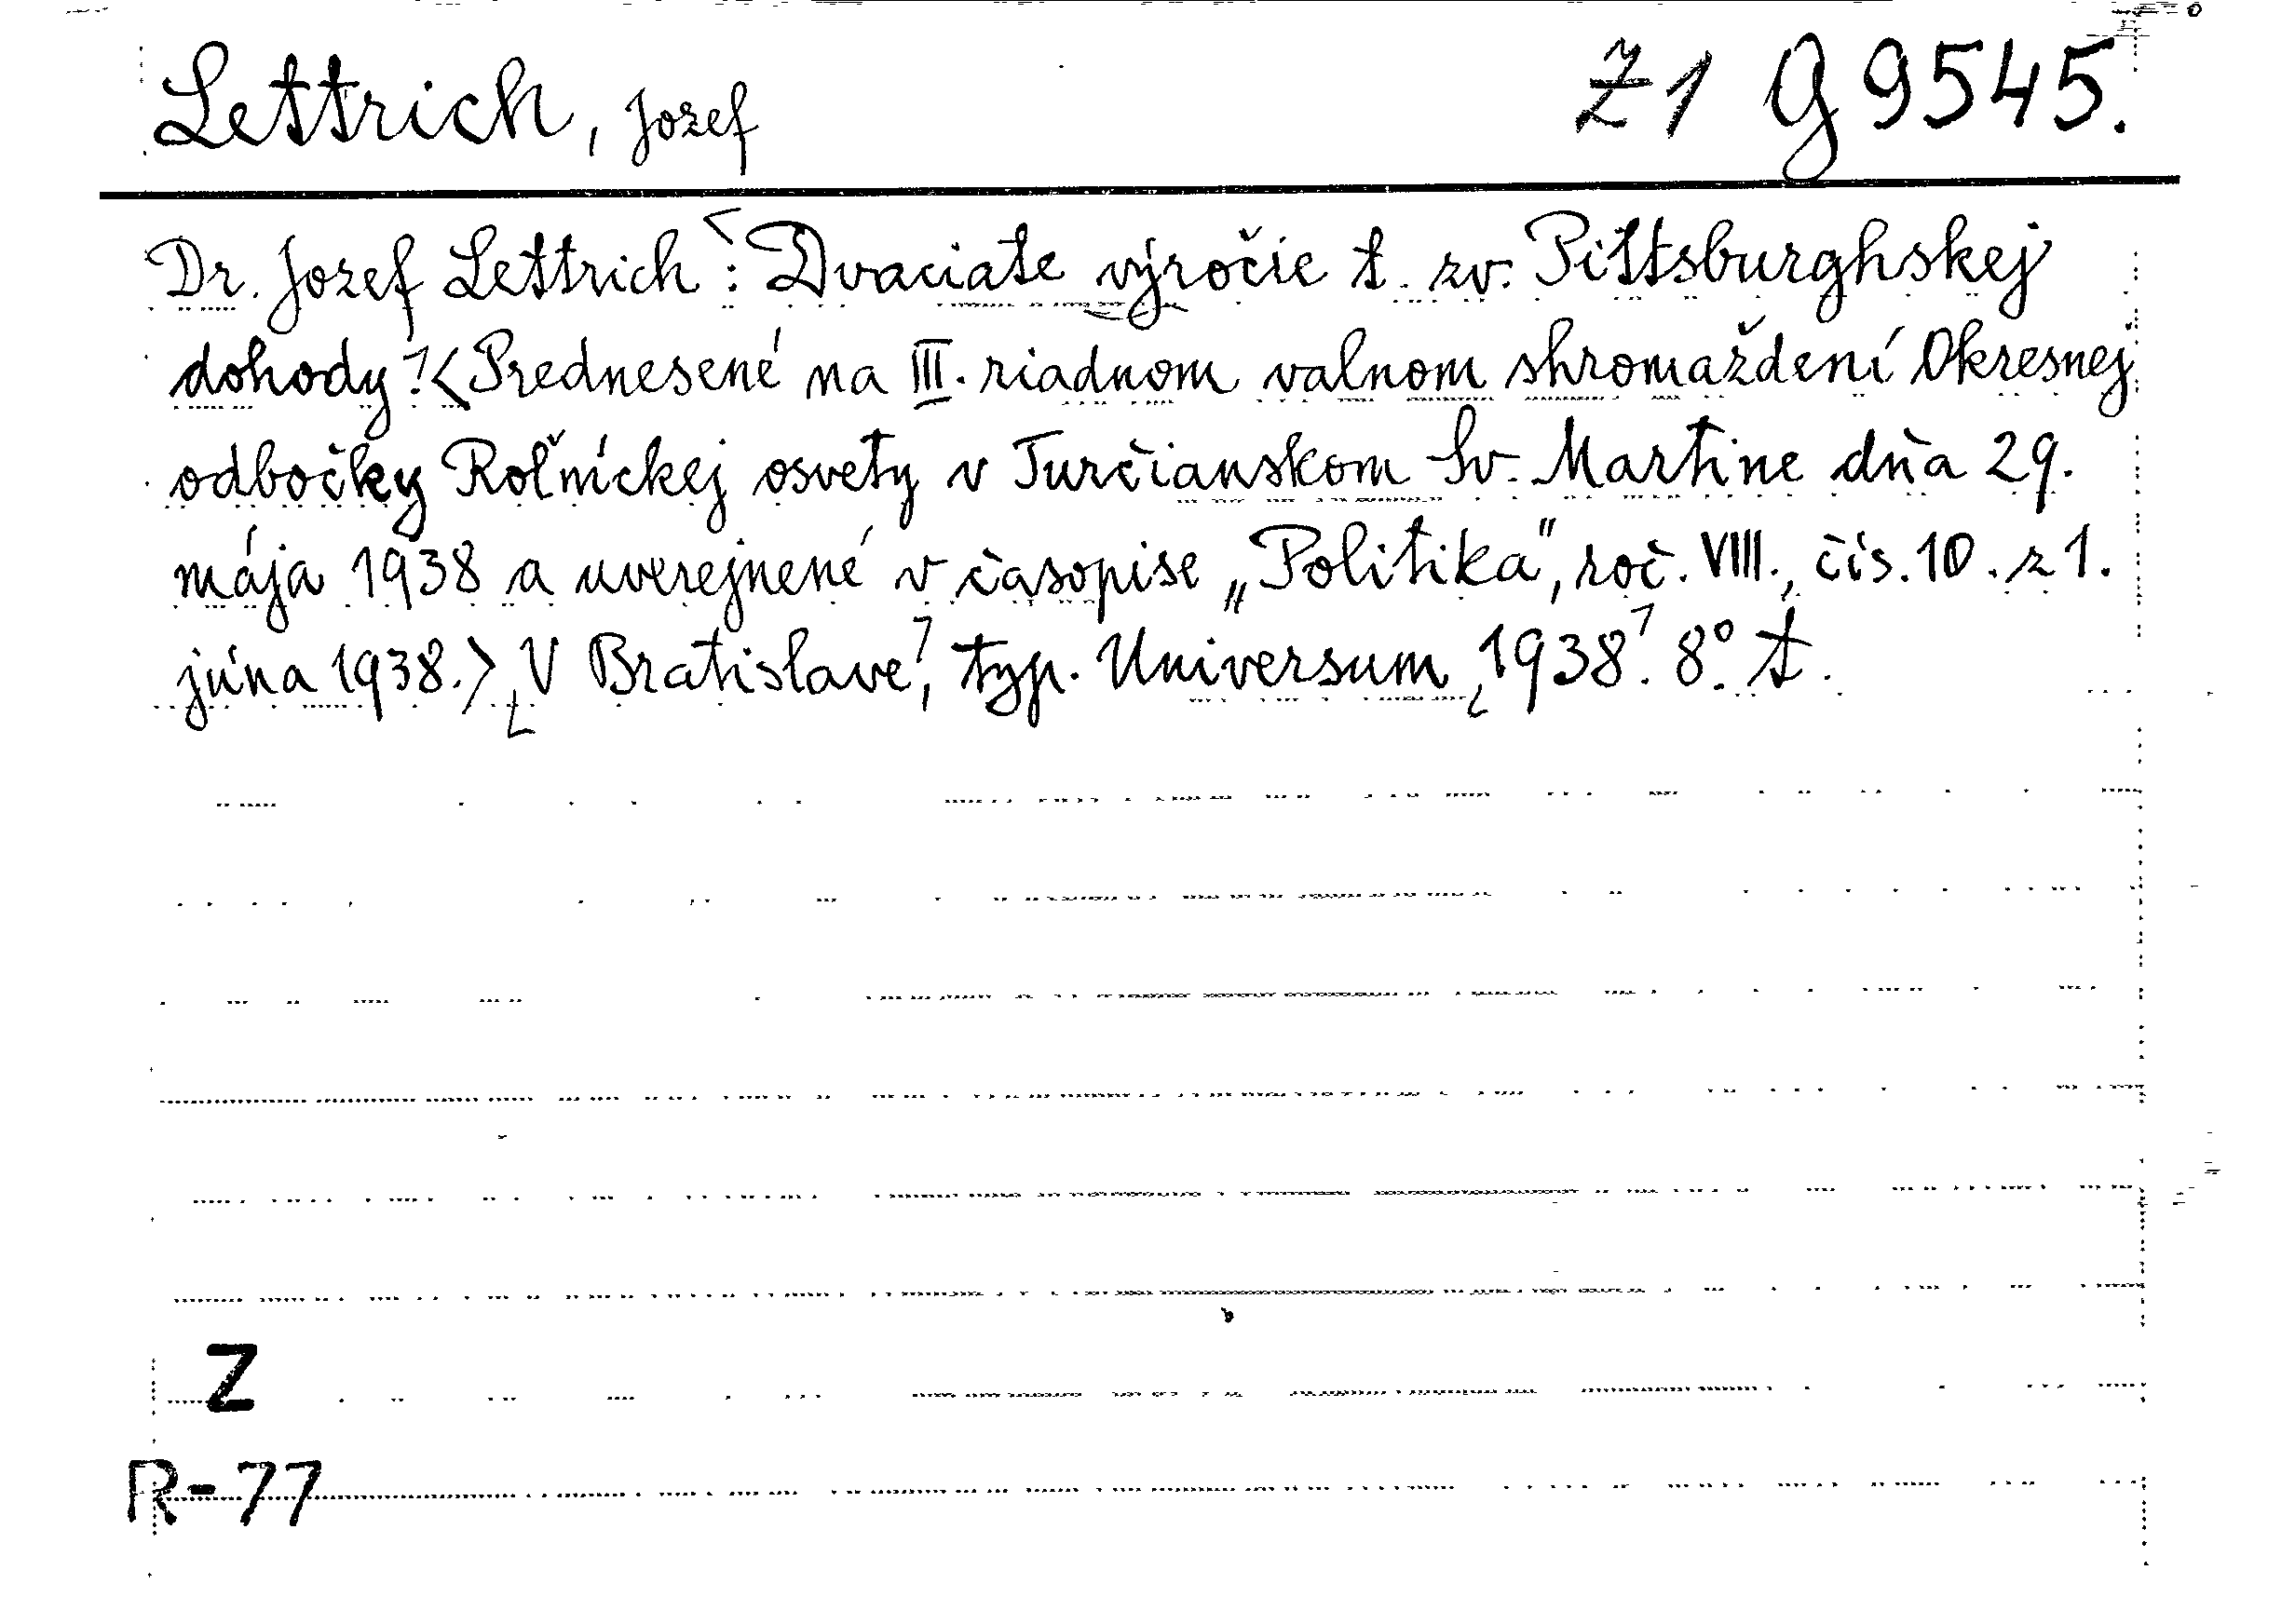 Lettrich, Jozef Z1 G 9545.
Dr. Jozef Lettrich: Dvaciate výročie t. zv. Pittsburghskej
dohody. <Prednesené na III. riadnom valnom shromaždení Okresnej
odbočky Roľníckej osvety v Turčianskom Sv. Martine dňa 29.
mája 1938 a uverejnené v časopise „Politika", roč. VIII., čís. 10. z 1.
júna 1938.> V Bratislave, typ. Universum, 1938. 8°. t.
Z
R-77